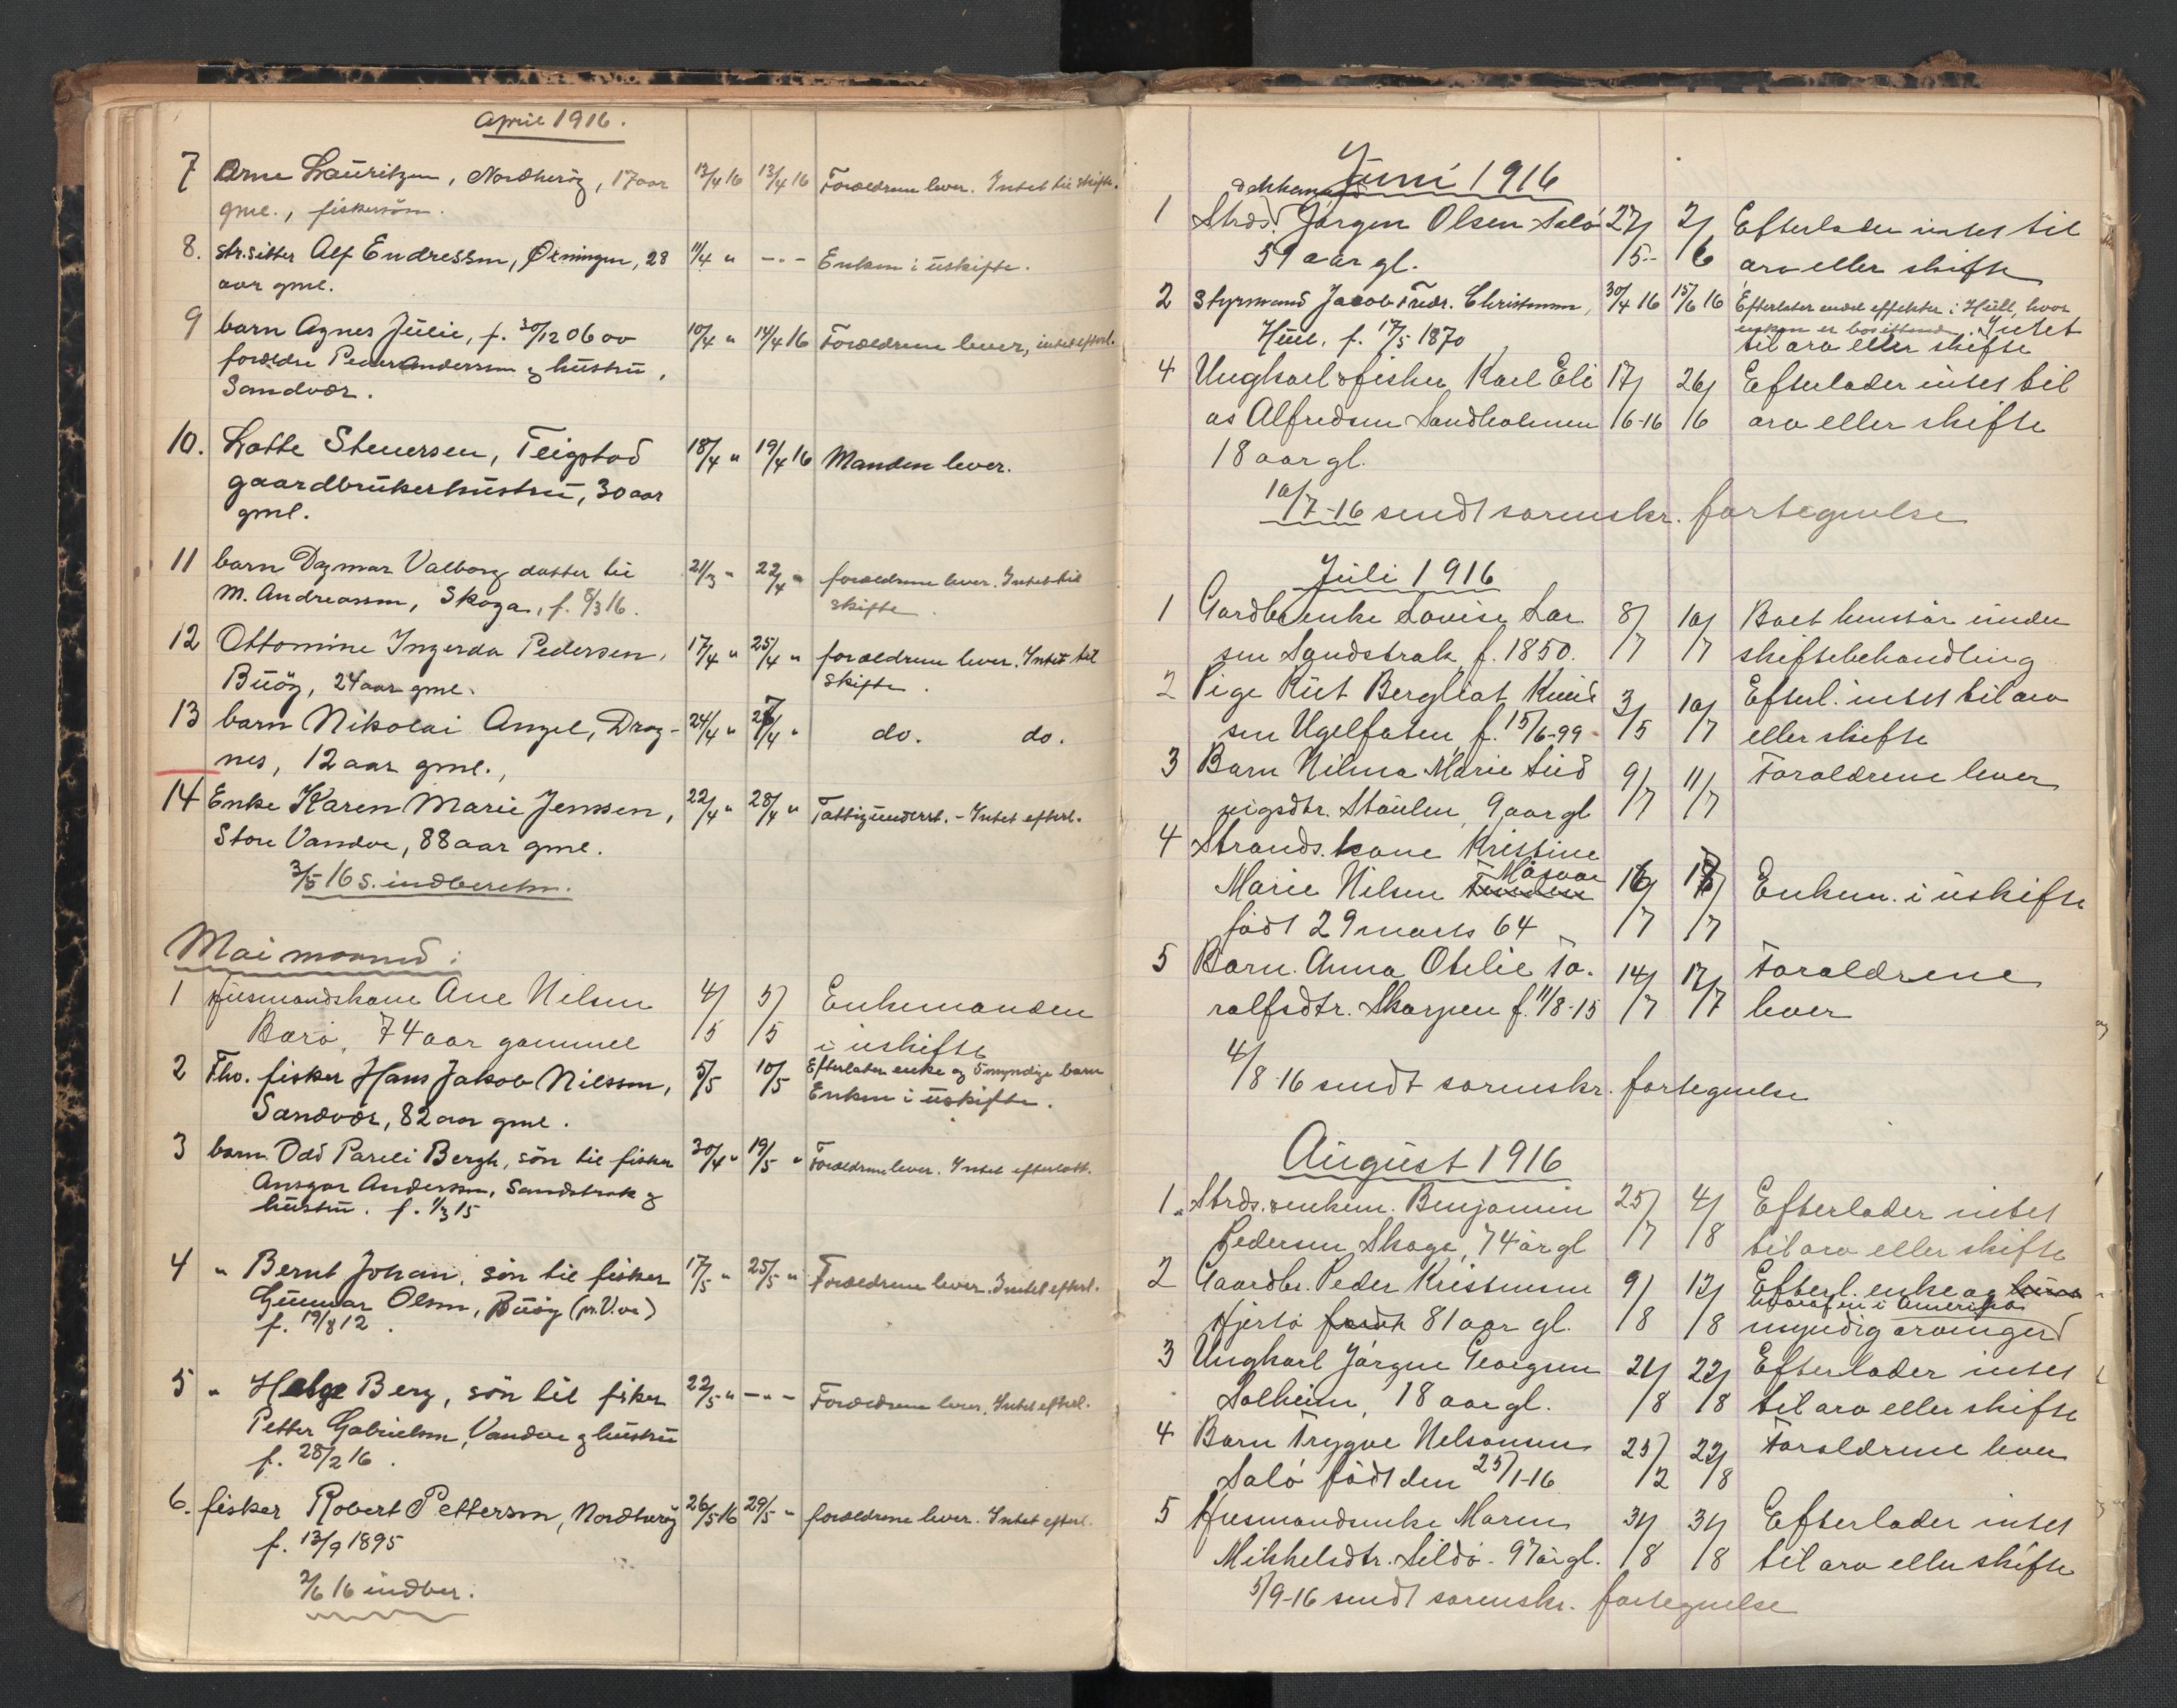 April 1916.
7 Arne Lauritzen, Nordherøy, 17 aar 13/4 16 13/4 16 Forældrene lever. Intet til skifte.
gml., fiskersøn.
8. str.sitter Alf Endressen, 28 11/4 " - " - Enken i uskifte.
aar gml.
9 barn Agnes Julie, f. 30/12 06 av 10/4 " 14/4 16 Forældrene lever, intet efterl.
forældre Peder Anderssen & hustru,
Sandvær.
10. Lotte Stenersen, Teigstad 18/4 " 19/4 16 Manden lever.
gaardbrukerhustru, 30 aar
gml.
11 barn Dagmar Valborg datter til 21/3 " 22/4 " forældrene lever. Intet til
M. Andreassen, Skaga, f. 8/3 16. skifte.
12 Ottomine Ingerda Pedersen, 17/4 " 25/4 " forældrene lever. Intet til
Buøy, 24 aar gml. skifte.
13 barn Nikolai Angel, Drag- 24/4 " /4 " do. do.
nes, 12 aar gml.,
14 Enke Karen Marie Jenssen, 22/4 " 28/4 " Fattigunderst. - Intet efterl.
Store Vandve, 88 aar gml.
3/5 16 s. indberetn.
Mai maaned:
1 Husmandskone Ane Nilsen 4/5 5/5 Enkemanden
Barø, 74 aar gammel i uskifte
2 Fhv. fisker Hans Jakob Nilssen, 5/5 10/5 Efterlater enke og 5 myndige barn
Sandvær, 82 aar gml. Enken i uskifte.
3 barn Odd Pareli Bergh, søn til fisker 30/4 " 19/5 " Forældrene lever. Intet efterlatt.
Ansgar Anderssen, Sandstrak &
hustru. f. 1/3 15
4 " Bernt Johan, søn til fisker 17/5 " 25/5 " Forældrene lever. Intet efterl.
Gunnar Olsen, Buøy (pr. V.ve)
f. 19/8 12.
5 " Helge Berg, søn til fisker 22/5 " - " - Forældrene lever. Intet efterl.
Petter Gabrielsen, Vandve & hustru
f. 28/2 16.
6. fisker Robert Pettersen, Nordherøy 26/5 16 29/5 " forældrene lever. Intet efterl.
f. 13/9 1895
2/6 16 indber.
Juni 1916
1 Strds. Jørgen Olsen Salø 27/5- 2/6 Efterlader intet til
59 aar gl. arv eller skifte
2 Styrmand Jacob Fredr. Christensen, 30/4 16 15/6 16 Efterlater endel effekter i Hull, hvor
Hull, f. 17/5 1870 enken er bosittende. Intet
til arv eller skifte
4 Ungkarl & fisker Karl Eli 17/6-16 26/6 Efterlader intet til
as Alfredsen Sandholmen arv eller skifte
18 aar gl.
10/7-16 sendt sorenskr. fortegnelse
Juli 1916
1 Gardbr.enke Lovise Lar 8/7 10/7 Boet henstår under
sen Sandstrak f. 1850. skiftebehandling
2 Pige Rut Bergliot Knud 3/5 10/7 Efterl. intet til arv
sen Ugelfaten, f. 15/6-99 eller skifte
3 Barn Hilma Marie Lud 9/7 11/7 Forældrene lever
vigsdtr. Stäulen, 9 aar gl
4 Strands. kone Kristine
Marie Nilsen Måsvær 16/7 18/7 Enkem. i uskifte
født 29 marts 64
5 Barn. Anna Otelie To- 14/7 17/7 Forældrene
ralfsdtr. Skarpen f. 11/8-15 lever
4/8-16 sendt sorenskr. fortegnelse
August 1916
1. Strds. & enkem. Benjamin 25/7 4/8 Efterlader intet
Pedersen Skaga, 74 år gl til arv eller skifte
2 Gaardbr. Peder Kristensen 9/8 12/8 Efterl. enke og
hvoraf en i Amerika
Hjertø født 81 aar gl. myndig arvinger
3 Ungkarl Jørgen Georgsen 21/8 22/8 Efterlader intet
Solheim, 18 aar gl. til arv eller skifte
4 Barn Trygve Nelsonsen 25/2 22/8 Forældrene lever
Salø født den 25/1-16
5 Husmandsenke Maren 31/8 31/8 Efterlader intet
Mikkelsdtr. Sildø - 97 år gl. til arv eller skifte
5/9-16 sendt sorenskr. fortegnelse